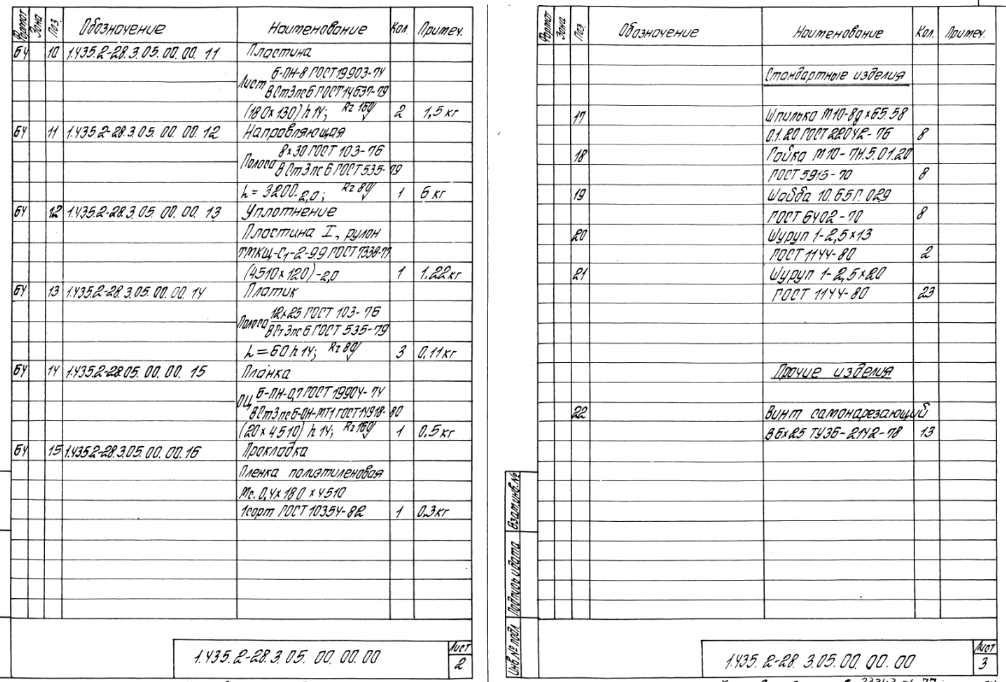 Формат Зона Поз. Обозначение Наименование Кол. Примеч.
БЧ 10 1.435.2-28.3.05.00.00.11 Пластина
Лист Б-ПН-8 ГОСТ 19903-74
ВСт3пс6 ГОСТ 14637-79
(180х130) h14; Rz 160 2 1,5 кг
БЧ 11 1.435.2-28.3.05.00.00.12 Направляющая
Полоса 8х30 ГОСТ 103-76
ВСт3пс6 ГОСТ 535-79
L=3200-2,0; Rz 80 1 6 кг
БЧ 12 1.435.2-28.3.05.00.00.13 Уплотнение
Пластина I, рулон
ТМКЩ-С1-2-99 ГОСТ 7338-77
(4510х120)-2,0 1 1,22 кг
БЧ 13 1.435.2-28.3.05.00.00.14 Платик
Полоса 12х25 ГОСТ 103-76
ВСт3пс6 ГОСТ 535-79
L=60 h14; Rz 80 3 0,11 кг
БЧ 14 1.435.2-28.05.00.00.15 Планка
ОЦ Б-ПН-0,7 ГОСТ 19904-74
ВСт3пс6-ОН-МТ1 ГОСТ 14918-80
(20х4510) h14; Rz 160 1 0,5 кг
БЧ 15 1.435.2-28.3.05.00.00.16 Прокладка
Пленка полиэтиленовая
Мс. 0,4х180х4510
1сорт ГОСТ 10354-82 1 0,3 кг
1.435.2-28.3.05.00.00.00
Лист
2
Формат Зона Поз. Обозначение Наименование Кол. Примеч.
Стандартные изделия
17 Шпилька М10-8gх65.58
01.20 ГОСТ 22042-76 8
18 Гайка М10-7Н.5.01.20
ГОСТ 5915-70 8
19 Шайба 10.65Г.029
ГОСТ 6402-70 8
20 Шуруп 1-2,5х13
ГОСТ 1144-80 2
21 Шуруп 1-2,5х20
ГОСТ 1144-80 23
Прочие изделия
22 Винт самонарезающий
В6х25 ТУ36-2142-78 13
Инв.№ подл. Подпись и дата Взам.инв.№
1.435.2-28.3.05.00.00.00
Лист
3